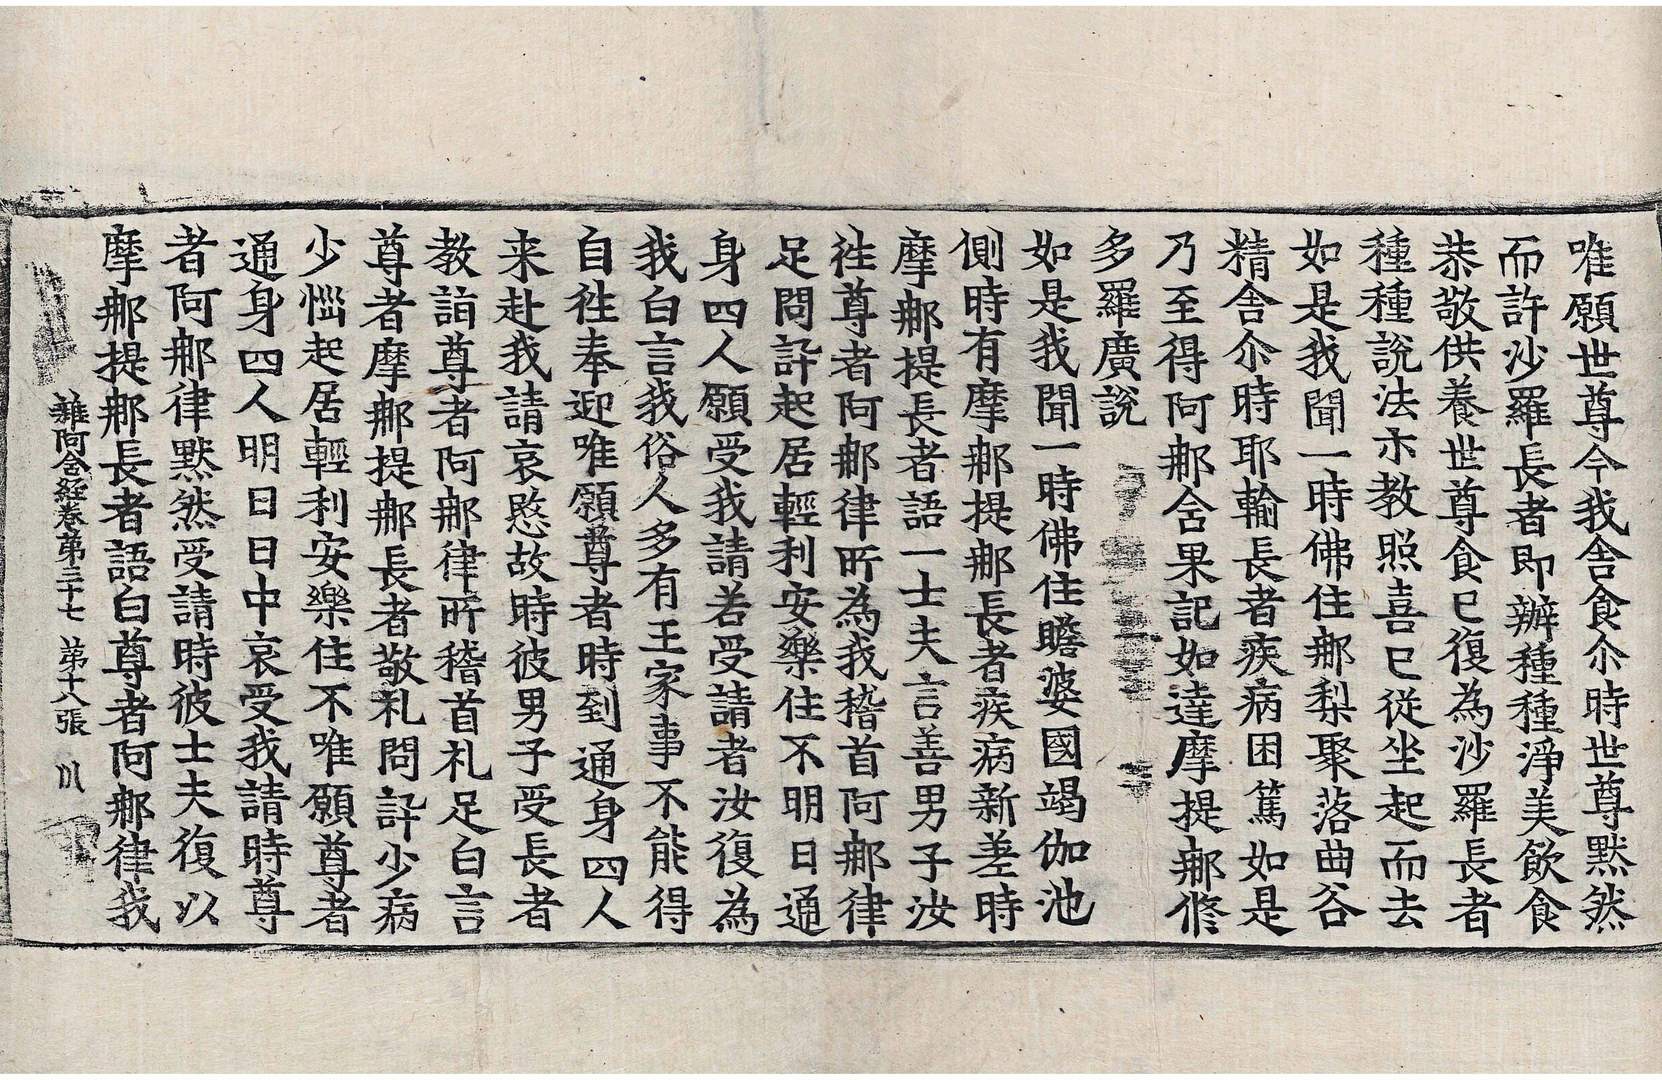 唯願世尊今我舍食尒時世尊黙然
而許沙羅長者即辦種種淨美飮食
恭敬供養世尊食已復為沙羅長者
種種說法示教照喜已從坐起而去
如是我聞一時佛住郍梨聚落曲谷
精舍尒時耶輸長者疾病困篤如是
乃至得阿郍含果記如達摩提郍修
多羅廣說
如是我聞一時佛住瞻婆國竭伽池
側時有摩郍提郍長者疾病新差時
摩郍提長者語一士夫言善男子汝
徃尊者阿郍律所為我稽首阿郍律
足問訊起居輕利安樂住不明日通
身四人願受我請若受請者汝復為
我白言我俗人多有王家事不能得
自徃奉迎唯願尊者時到通身四人
来赴我請哀愍故時彼男子受長者
教詣尊者阿郍律所稽首礼足白言
尊者摩郍提郍長者敬礼問訊少病
少惱起居輕利安樂住不唯願尊者
通身四人明日日中哀受我請時尊
者阿郍律黙然受請時彼士夫復以
摩郍提郍長者語白尊者阿郍律我
雜阿含経卷苐三十七 苐十八張